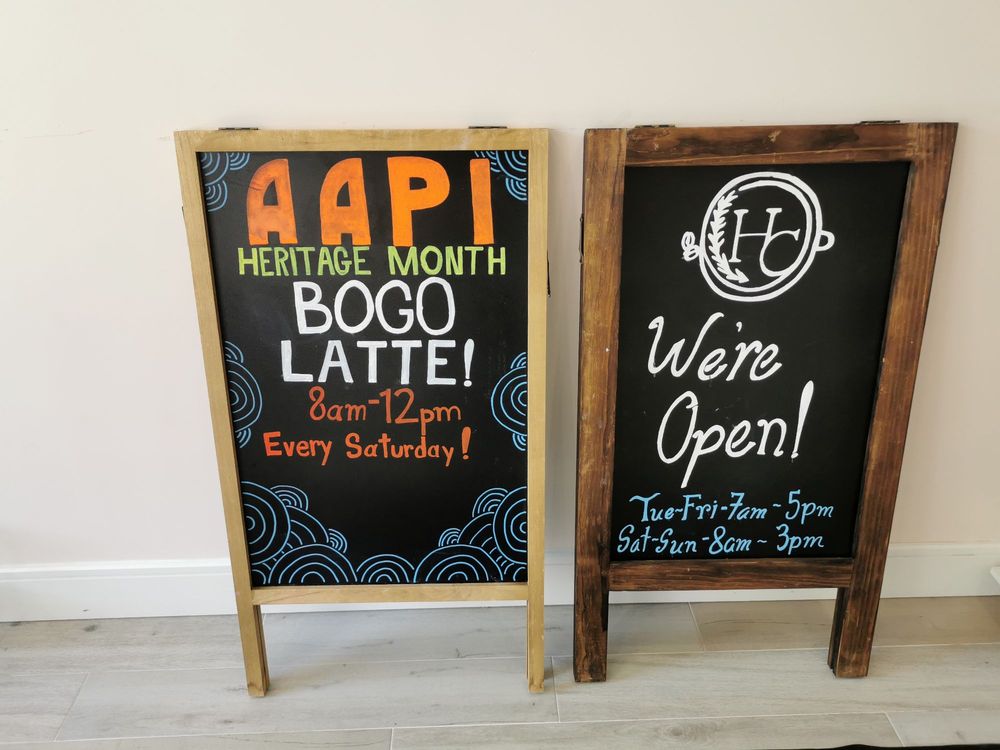 AAPI
HERITAGE MONTH
BOGO
LATTE!
8am-12pm
Every Saturday!
HC
We're
Open!
Tue-Fri-7am-5pm
Sat-Sun-8am-3pm